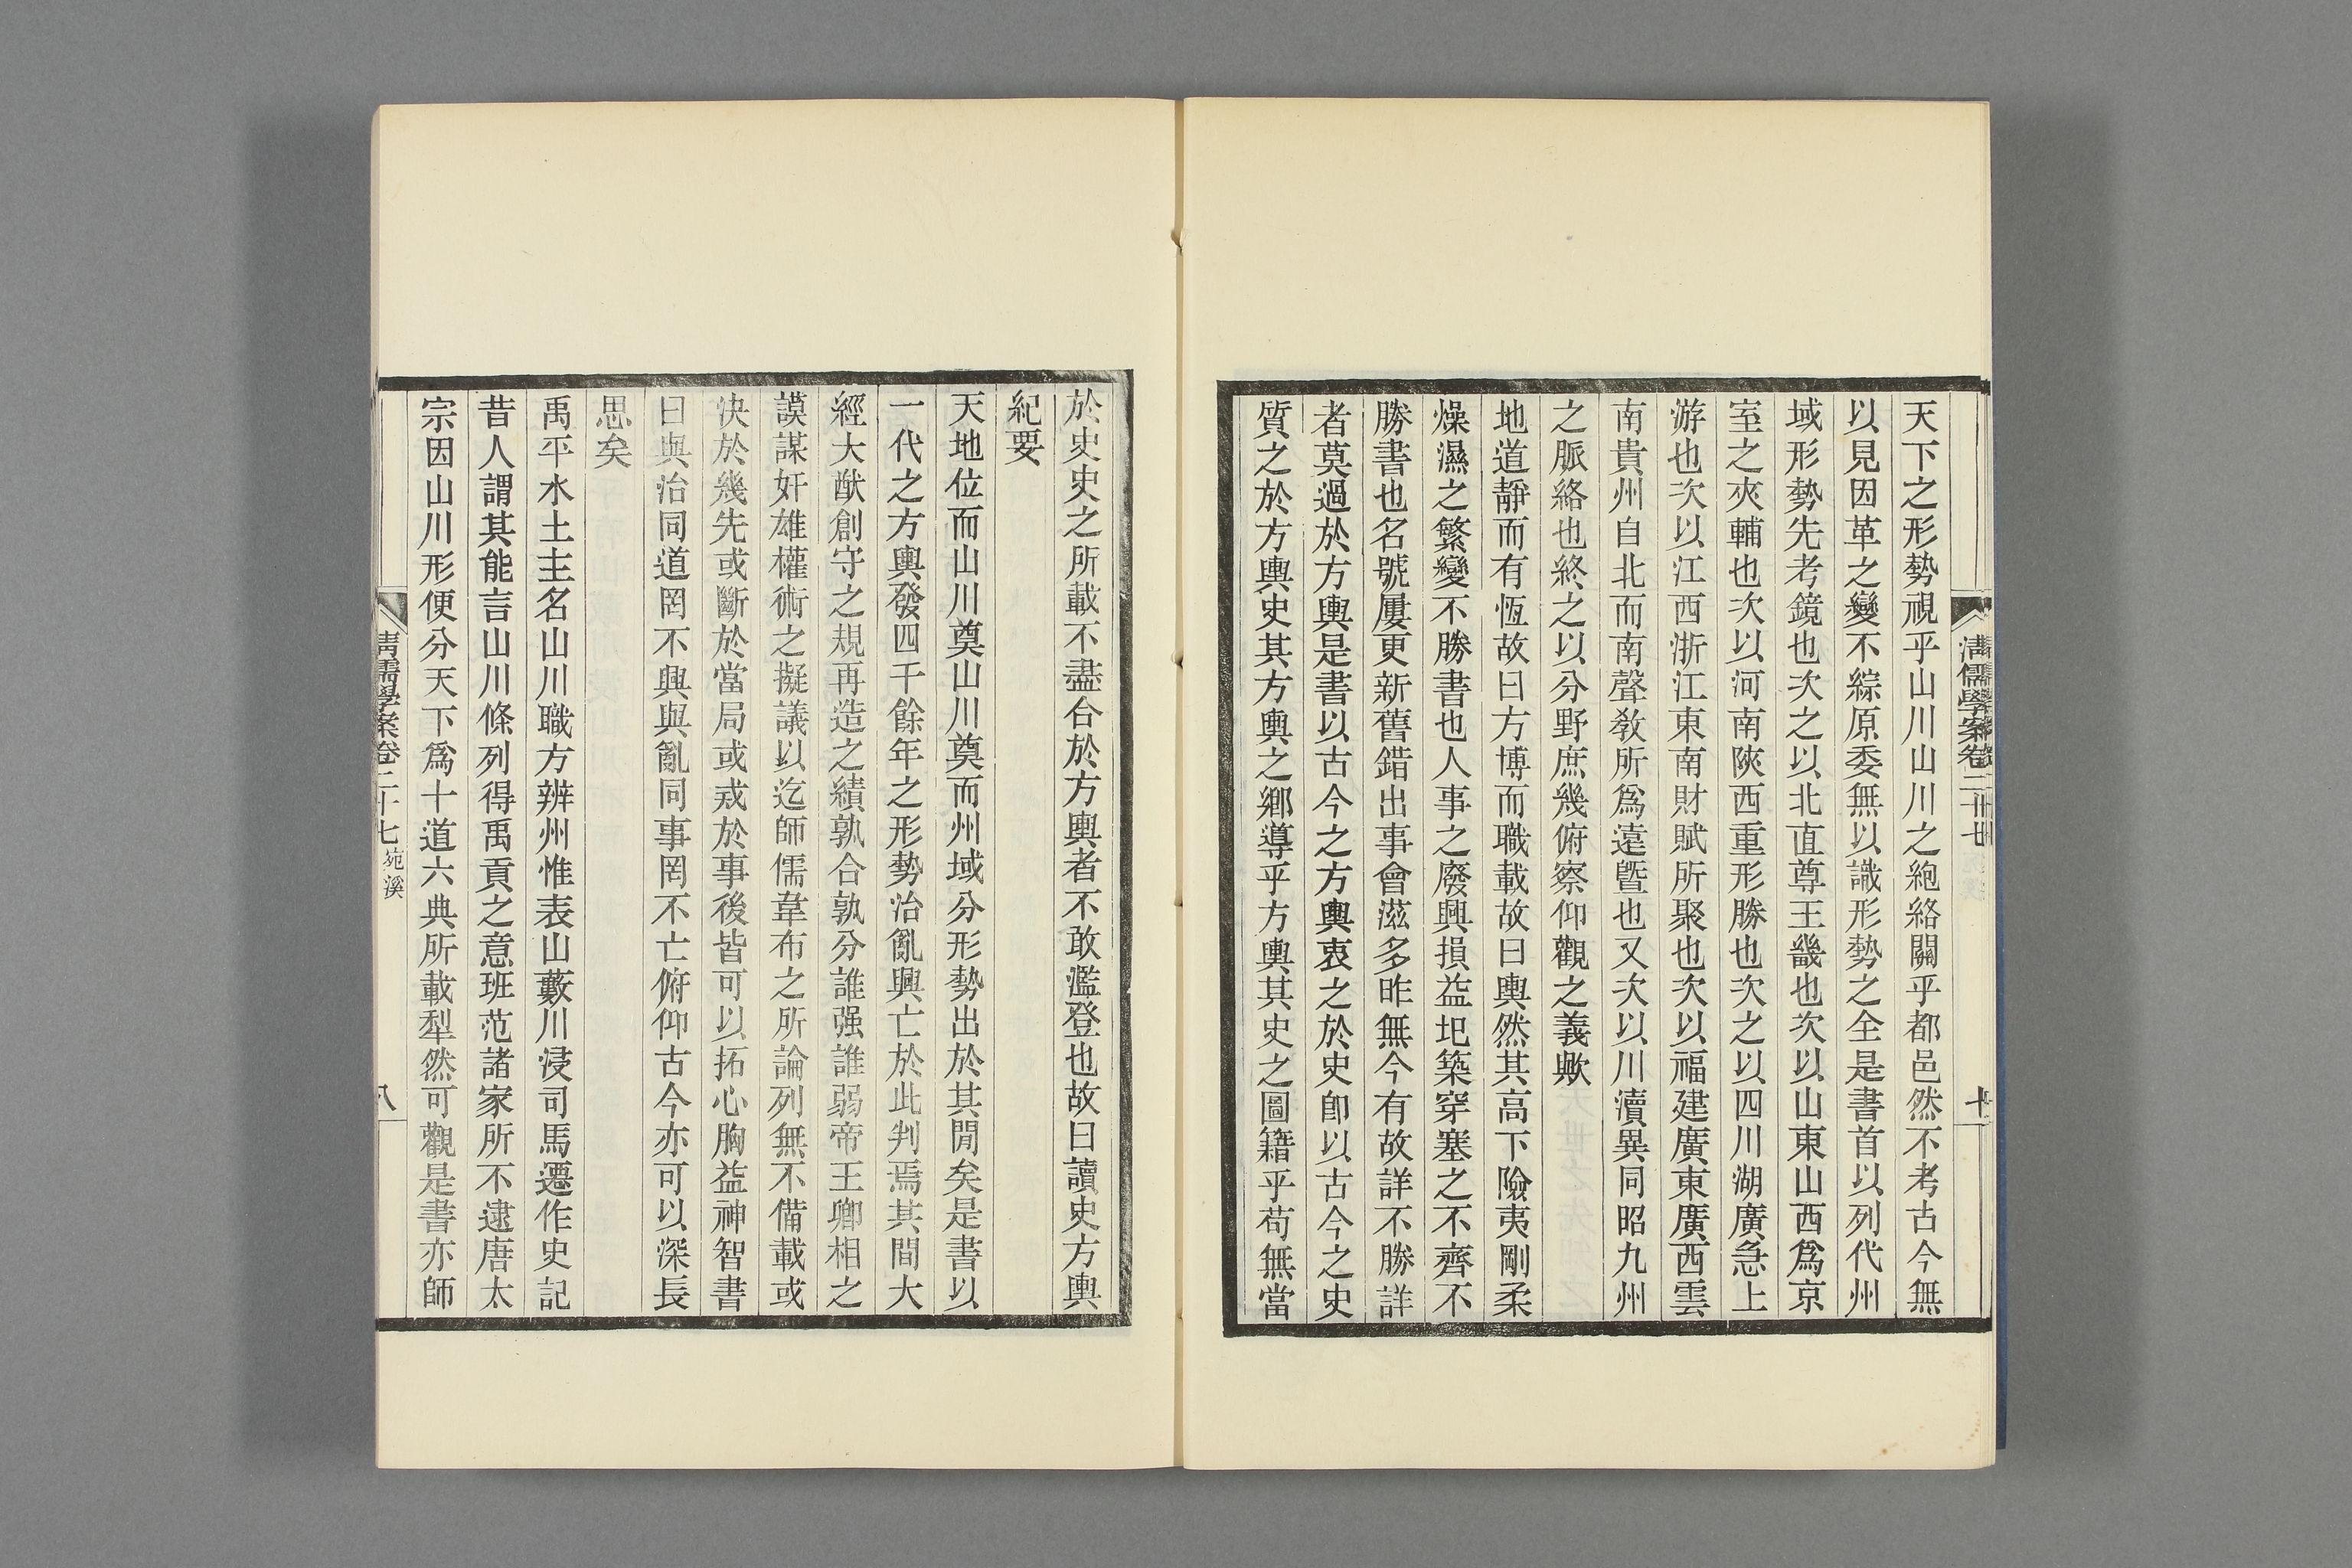 天下之形勢視乎山川山川之絶絡關乎都邑然不考古今無
以見因革之變不綜原委無以識形勢之全是書首以列代州
域形勢先考鏡也次之以北直尊王畿也次以山東山西爲京
室之夾輔也次以河南陝西重形勝也次之以四川湖廣急上
游也次以江西浙江東南財賦所聚也次以福建廣東廣西雲
南貴州自北而南聲敎所爲遠曁也又次以川瀆異同昭九州
之脈絡也終之以分野庶幾俯察仰觀之義歟
地道靜而有恆故曰方博而職載故曰輿然其高下險夷剛柔
燥濕之繁變不勝書也人事之廢興損益圮築穿塞之不齊不
勝書也名號屢更新舊錯出事會滋多昨無今有故詳不勝詳
者莫過於方輿是書以古今之方輿衷之於史卽以古今之史
質之於方輿史其方輿之鄕導乎方輿其史之圖籍乎苟無當
於史史之所載不盡合於方輿者不敢濫登也故曰讀史方輿
紀要
天地位而山川奠山川奠而州域分形勢出於其閒矣是書以
一代之方輿發四千餘年之形勢治亂興亡於此判焉其間大
經大猷創守之規再造之績孰合孰分誰强誰弱帝王卿相之
謨謀奸雄權術之擬議以迄師儒韋布之所論列無不備載或
決於幾先或斷於當局或戒於事後皆可以拓心胸益神智書
曰與治同道罔不興與亂同事罔不亡俯仰古今亦可以深長
思矣
禹平水土主名山川職方辨州惟表山藪川浸司馬遷作史記
昔人謂其能言山川條列得禹貢之意班范諸家所不逮唐太
宗因山川形便分天下爲十道六典所載犁然可觀是書亦師
淸儒學案卷二十七 宛溪
八